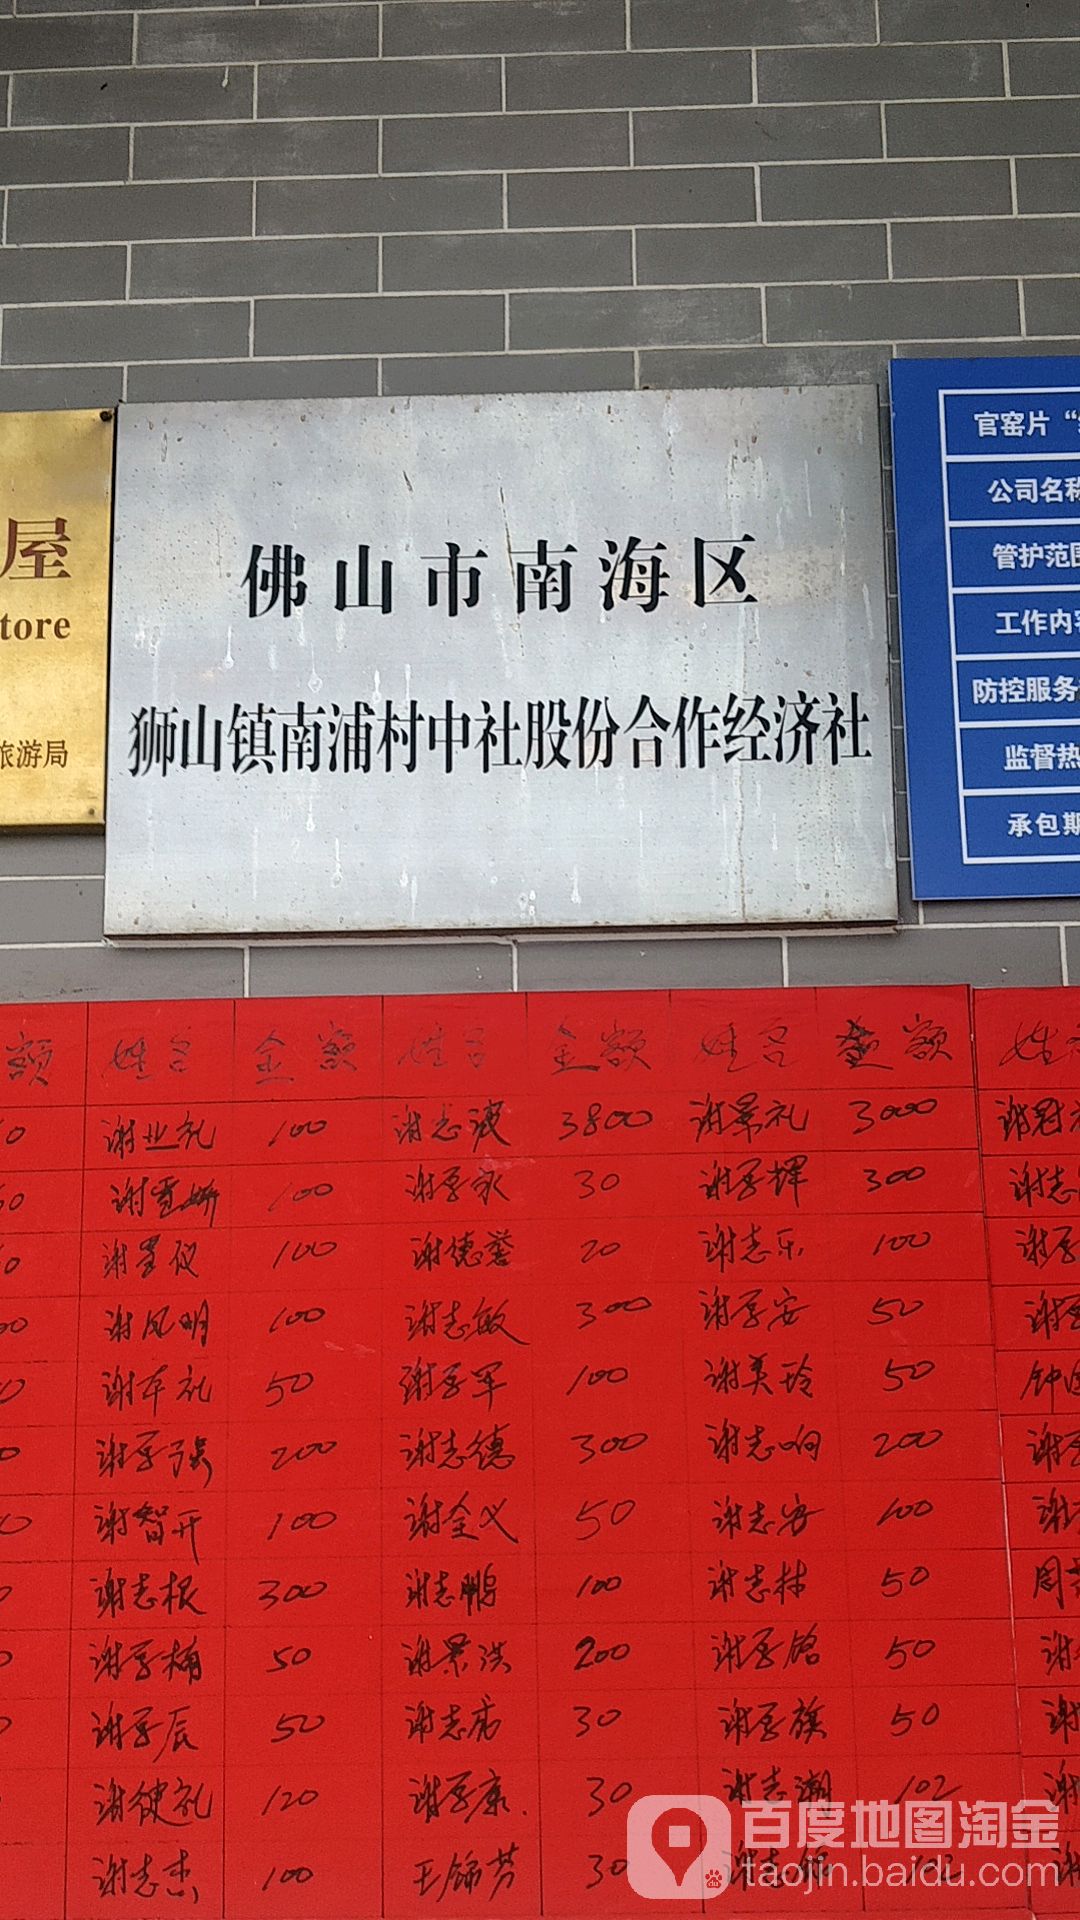 屋
tore
旅游局
佛山市南海区
狮山镇南浦村中社股份合作经济社
官窑片“
公司名称
管护范围
工作内容
防控服务
监督热
承包期
额 姓名 金额 姓名 金额 姓名 金额 姓
谢业礼 100 谢志波 3800 谢景礼 3000 谢冠
100 谢孚永 30 谢孚辉 300 谢志
100 谢德誉 20 谢志乐 100 谢孚
谢凤明 100 谢志敏 300 谢孚安 50 谢
谢车礼 50 谢孚军 100 谢美玲 50 钟
谢孚强 200 谢志德 300 谢志响 200 谢孚
谢智开 100 谢全义 50 谢志安 100 谢
谢志根 300 谢志鹏 100 谢志林 50 周
谢孚楠 50 谢景洪 200 50 谢
谢孚辰 50 30 谢孚旗 50 谢
谢健礼 120 谢孚康 30 谢志潮 102 谢
谢志杰 100 王锦芳 30 谢志 102 谢
百度地图淘金
taojin.baidu.com